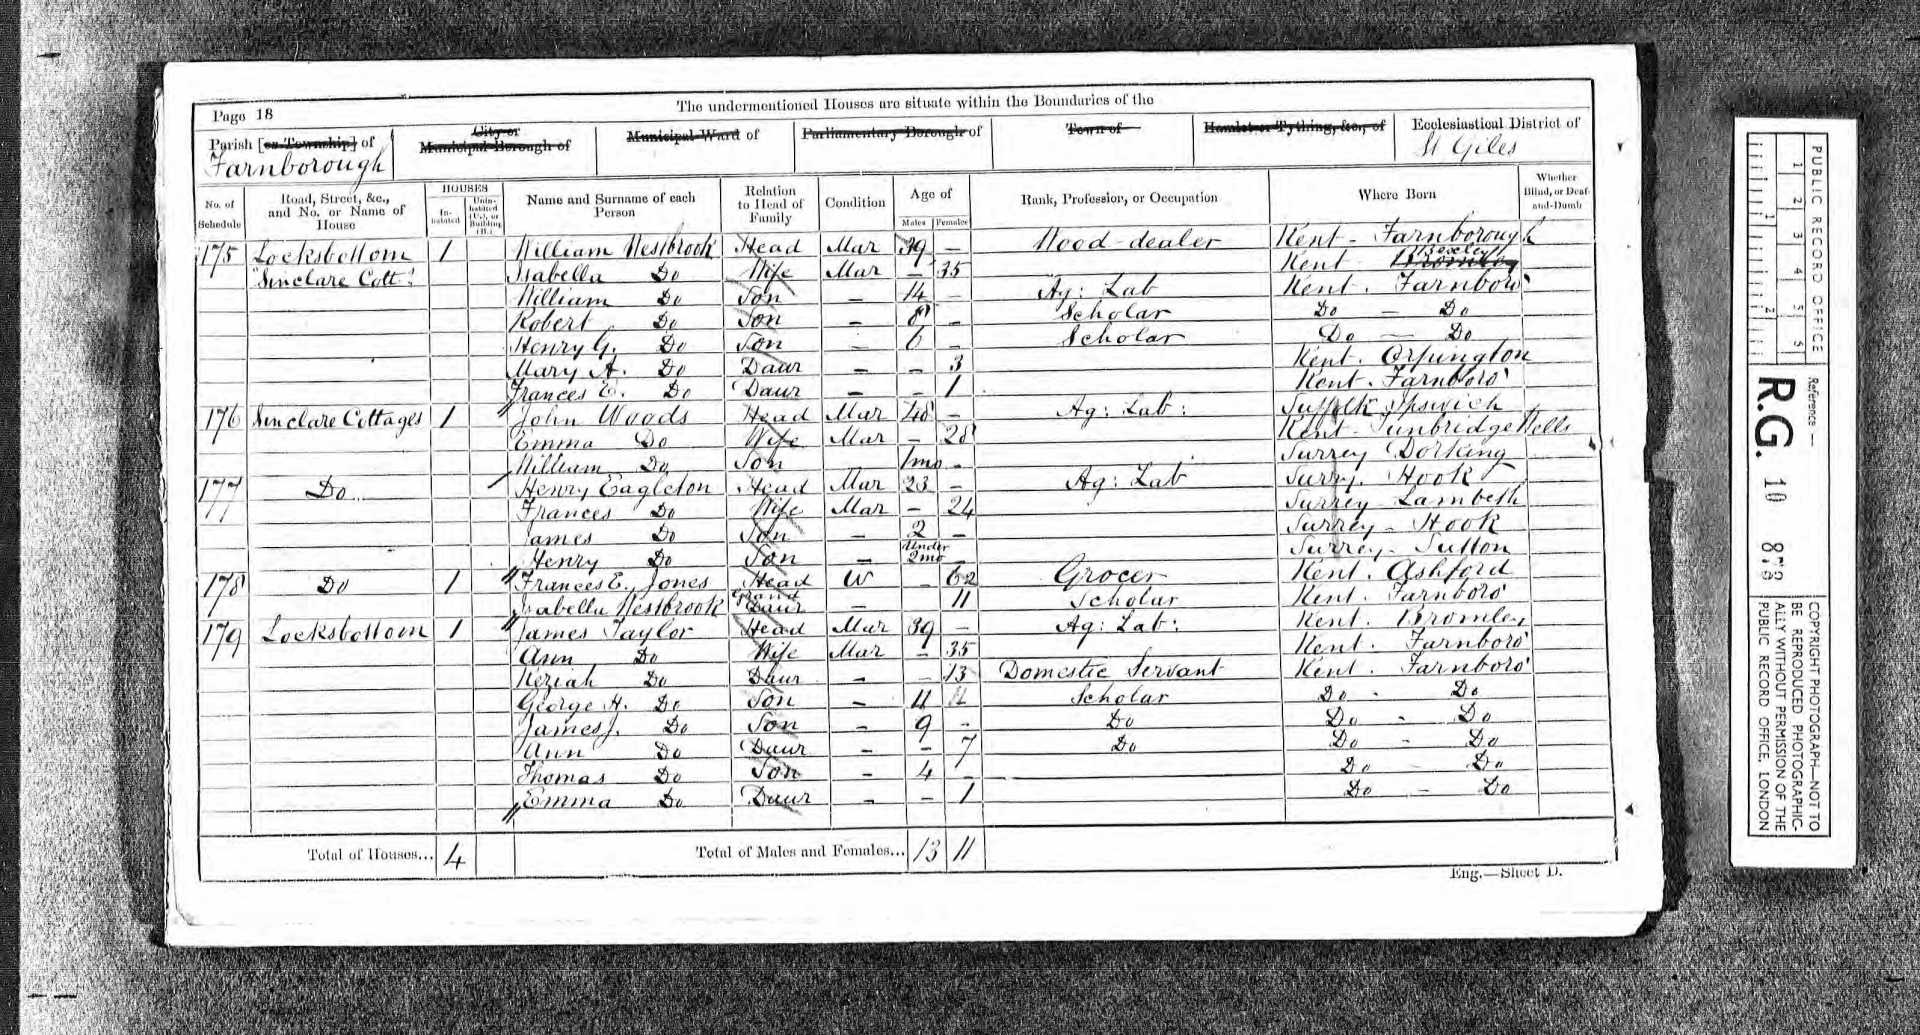 Page 18
The undermentioned Houses are situate within the Boundaries of the
Parish [or Township] of Farnborough
City or Municipal Borough of
Municipal Ward of
Parliamentary Borough of
Town of
Hamlet or Tything, &c., of
Ecclesiastical District of St Giles
No. of Schedule
Road, Street, &c., and No. or Name of House
HOUSES
Inhabited
Uninhabited (U.), or Building (B.)
Name and Surname of each Person
Relation to Head of Family
Condition
Age of
Males
Females
Rank, Profession, or Occupation
Where Born
Whether Blind, or Deaf-and-Dumb
175 Locksbottom 1 William Westbrook Head Mar 39 – Wood-dealer Kent - Farnborough
"Sinclare Cott: Isabella Do Wife Mar – 35 Kent
William Do Son – 14 – Ag: Lab Kent. Farnboro'
Robert Do Son – 8 – Scholar Do – Do
Henry G. Do Son – 6 – Scholar Do – Do
Mary A. Do Daur – – 3 Kent. Orpington
Frances E. Do Daur – – 1 Kent. Farnboro'
176 Sinclare Cottages 1 John Woods Head Mar 48 – Ag: Lab: Suffolk Ipswich
Emma Do Wife Mar – 28 Kent - Tunbridge Wells
William Do Son 1mo – Surrey Dorking
177 Do Henry Eagleton Head Mar 23 – Ag: Lab Surry. Hook
Frances Do Wife Mar – 24 Surrey Lambeth
James Do Son – 2 – Surrey - Hook
Henry Do Son – Under 2mo – Surrey. Sutton
178 Do 1 Frances E. Jones Head W – 62 Grocer Kent. Ashford
Isabella Westbrook Grand Daur – 11 Scholar Kent. Farnboro'
179 Locksbottom 1 James Taylor Head Mar 39 – Ag: Lab: Kent. Bromley
Ann Do Wife Mar – 35 Kent. Farnboro'
Keziah Do Daur – – 13 Domestic Servant Kent. Farnboro'
George H. Do Son – 11 Scholar Do - Do
James J. Do Son – 9 – Do Do - Do
Ann Do Daur – – 7 Do Do - Do
Thomas Do Son – 4 – Do Do
Emma Do Daur – – 1 Do – Do
Total of Houses... 4
Total of Males and Females... 13 11
Eng.—Sheet D.
PUBLIC RECORD OFFICE
1 2 3 4 5 6
1 2
Reference —
R.G. 10 873
COPYRIGHT PHOTOGRAPH—NOT TO
BE REPRODUCED PHOTOGRAPHIC-
ALLY WITHOUT PERMISSION OF THE
PUBLIC RECORD OFFICE, LONDON